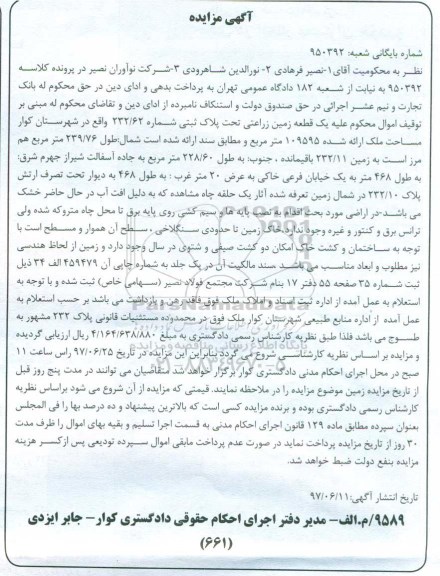 آگهی مزایده
شماره بایگانی شعبه: ۹۵۰۳۹۲
نظر به محکومیت آقای۱-نصیر فرهادی ۲- نورالدین شاهرودی ۳-شرکت نوآوران نصیر در پرونده کلاسه
۹۵۰۳۹۲ به نیابت از شعبه ۱۸۲ دادگاه عمومی تهران به پرداخت بدهی و ادای دین در حق محکوم له بانک
تجارت و نیم عشر اجرائی در حق صندوق دولت و استنکاف نامبرده از ادای دین و تقاضای محکوم له مبنی بر
توقیف اموال محکوم علیه یک قطعه زمین زراعتی تحت پلاک ثبتی شماره ۲۳۲/۶۲ واقع در شهرستان کوار
مساحت ملک ارائه شده ۱۰۹۵۹۵ متر مربع و مطابق سند ارائه شده است شمال:طول ۲۳۹/۷۶ متر مربع هم
مرز است به زمین ۲۳۲/۱۱ باقیمانده ، جنوب: به طول ۲۲۸/۶۰ متر مربع به جاده آسفالت شیراز جهرم شرق:
به طول ۴۶۸ متر به یک خیابان فرعی خاکی به عرض ۲۰ متر غرب : به طول ۴۶۸ به دیوار تحت تصرف ارتش
پلاک ۲۳۲/۱۰ در شمال زمین تعرفه شده آثار یک حلقه چاه مشاهده که به دلیل افت آب در حال حاضر خشک
می باشد-در اراضی مورد بحث اقدام به نصب پایه ها و سیم کشی روی پایه برق تا محل چاه متروکه شده ولی
ترانس برق و کنتور و غیره وجود ندارد.خاک زمین تا حدودی سنگلاخی ، سطح آن هموار و مسطح است با
توجه به ساختمان و کشت خاک امکان دو کشت صیفی و شتوی در سال وجود دارد و زمین از لحاظ هندسی
نیز مطلوب و ابعاد مناسب می باشد .سند مالکیت آن در یک جلد به شماره چاپی آن ۴۵۹۴۷۹ الف ۳۴ ذیل
ثبت شماره ۳۵ صفحه ۵۵ دفتر ۱۷ بنام شرکت مجتمع فولاد نصیر (سهامی خاص) ثبت شده و با توجه به
استعلام به عمل آمده از اداره ثبت اسناد و املاک ملک فوق فاقد رهن و بازداشت می باشد بر حسب استعلام به
عمل آمده از اداره منابع طبیعی شهرستان کوار ملک فوق در محدوده مستثنیات قانونی پلاک ۲۳۲ مشهور به
طسوج می باشد فلذا طبق نظریه کارشناس رسمی دادگستری به مبلغ ۴/۱۶۴/۶۳۸/۸۸۰ ریال ارزیابی گردیده
و مزایده بر اساس نظریه کارشناسی شروع می گردد بنابراین این مزایده در تاریخ ۹۷/۰۶/۲۵ راس ساعت ۱۱
صبح در محل اجرای احکام مدنی دادگستری کوار برگزار خواهد شد متقاضیان می توانند در مدت پنج روز قبل
از تاریخ مزایده زمین موضوع مزایده را در ملاحظه نمایند. قیمتی که مزایده از آن شروع می شود براساس نظریه
کارشناس رسمی دادگستری بوده و برنده مزایده کسی است که بالاترین پیشنهاد و ده درصد بها را فی المجلس
بعنوان سپرده مطابق ماده ۱۲۹ قانون اجرای احکام مدنی به قسمت اجرا تسلیم و بقیه بهای اموال را ظرف مدت
۳۰ روز از تاریخ مزایده پرداخت نماید در صورت عدم پرداخت مابقی اموال سپرده تودیعی پس ازکسر هزینه
مزایده بنفع دولت ضبط خواهد شد.
تاریخ انتشار آگهی:۹۷/۰۶/۱۱
۹۵۸۹/م.الف- مدیر دفتر اجرای احکام حقوقی دادگستری کوار- جابر ایزدی
(۶۶۱)